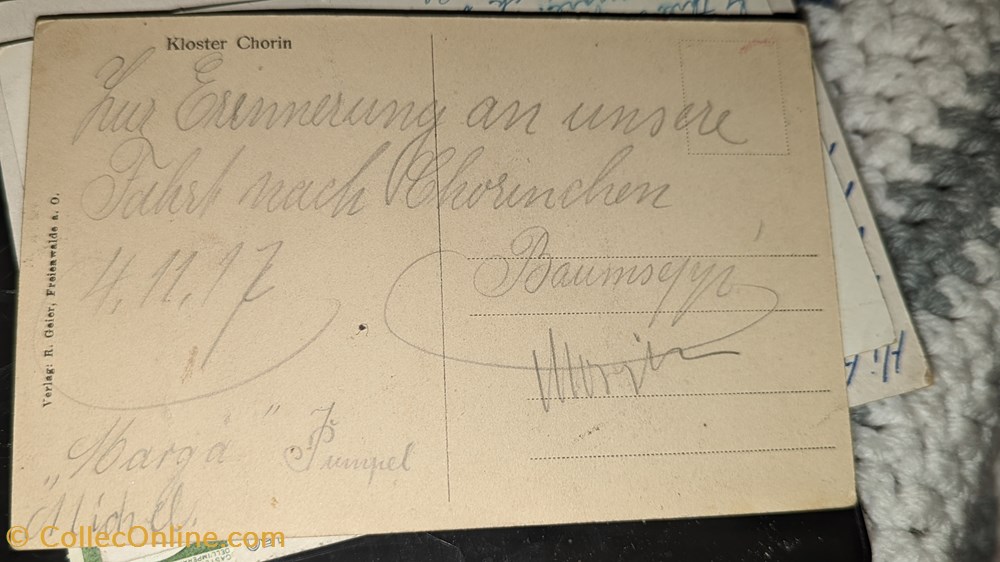 Kloster Chorin
Zur Erinnerung an unsere
Fahrt nach Chorinchen
4.11.17
Verlag: R. Geier, Freienwalde a. O.
„Marga" Pumpel
Michel.
© CollecOnline.com